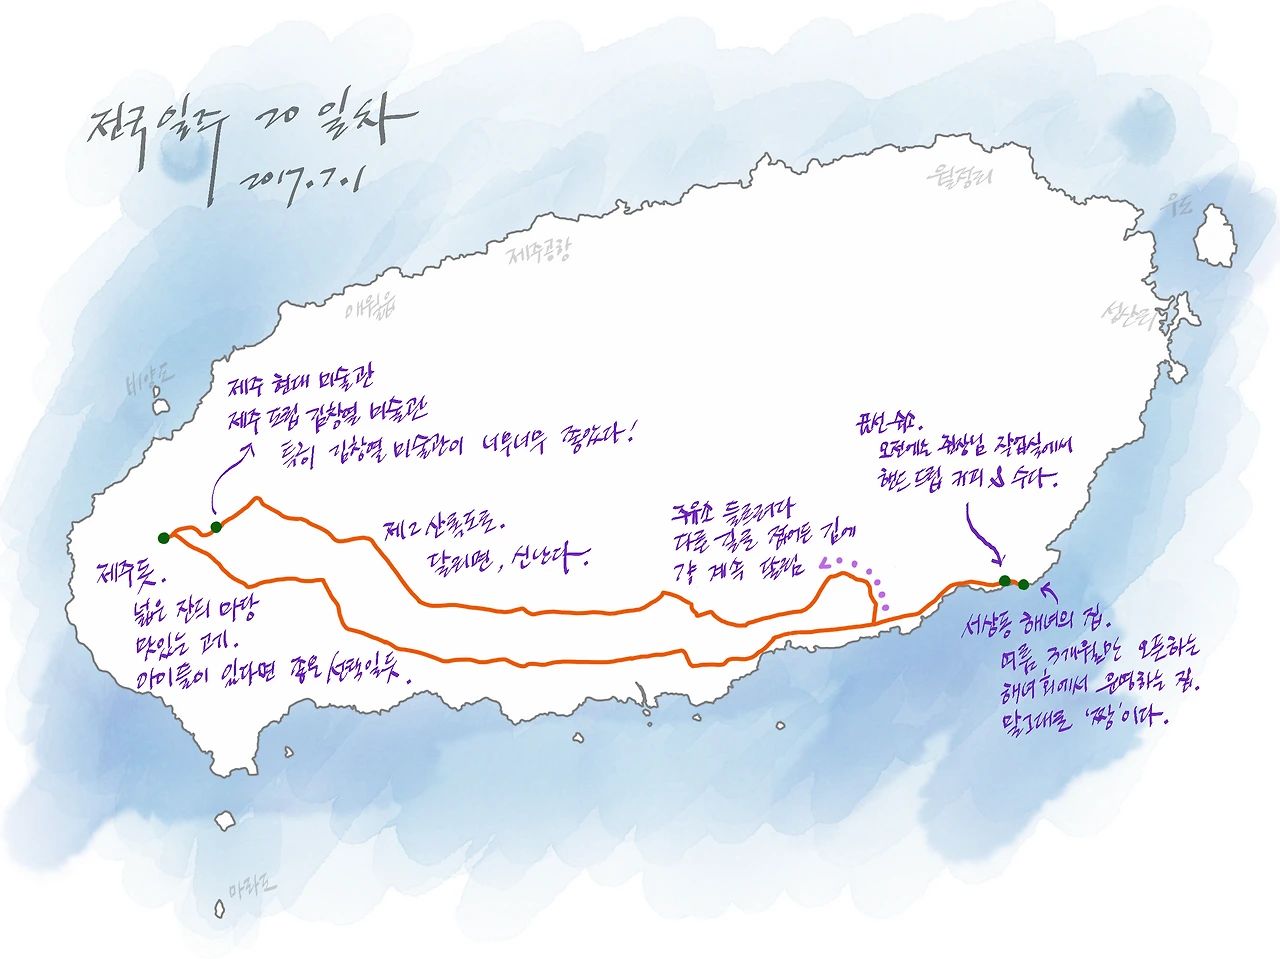 전국일주 20일차
2017.7.1
월정리
우도
제주공항
애월읍
성산리
비양도
제주 현대 미술관
제주 도립 김창열 미술관
특히 김창열 미술관이 너무너무 좋았다!
오전에는 쥔장님 작업실에서
핸드 드립 커피 & 수다.
제2산록도로.
달리면, 신난다.
주유소 들르려다
다른 길로 접어든 김에
걍 계속 달림
제주듯.
넓은 잔디 마당
맛있는 고기.
아이들이 있다면 좋은 선택일듯.
해녀의 집.
여름 3개월만 오픈하는
해녀회에서 운영하는 집.
말그대로 '짱'이다.
마라도